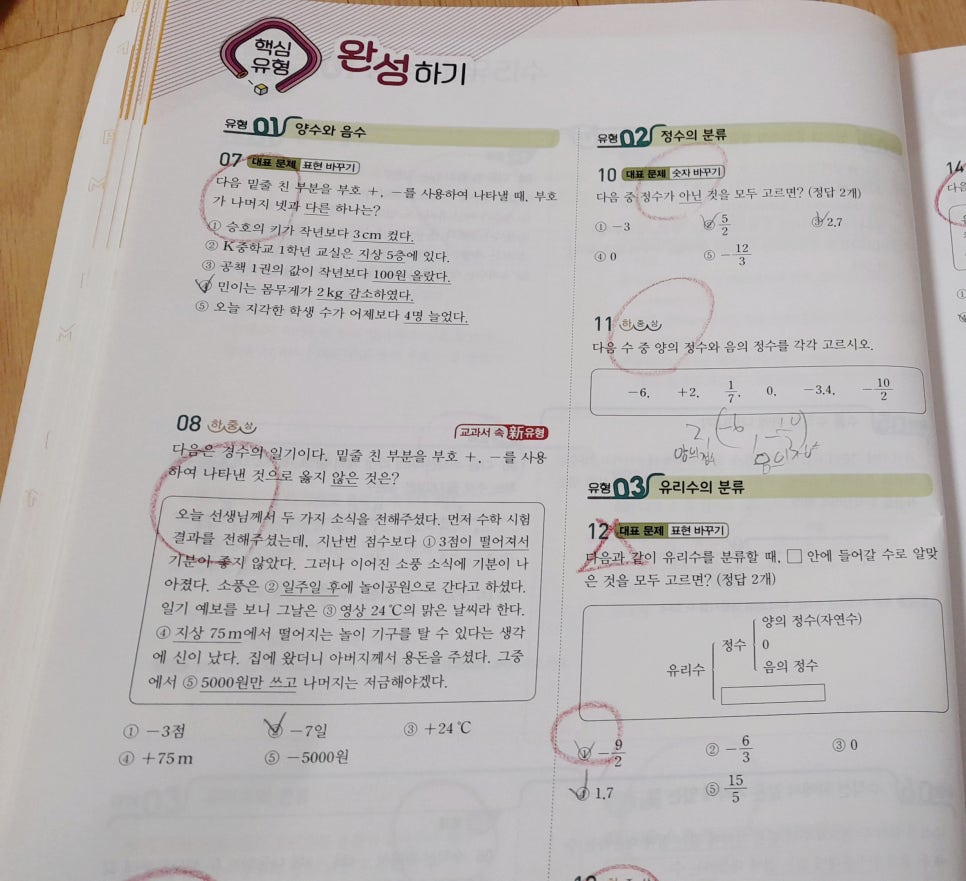 핵심
유형
완성하기
유형 01 양수와 음수
07 대표 문제 표현 바꾸기
다음 밑줄 친 부분을 부호 +, -를 사용하여 나타낼 때, 부호
가 나머지 넷과 다른 하나는?
① 승호의 키가 작년보다 3cm 컸다.
② K중학교 1학년 교실은 지상 5층에 있다.
③ 공책 1권의 값이 작년보다 100원 올랐다.
④ 민이는 몸무게가 2kg 감소하였다.
⑤ 오늘 지각한 학생 수가 어제보다 4명 늘었다.
08 하 중 상
교과서 속 新유형
다음은 정수의 일기이다. 밑줄 친 부분을 부호 +, -를 사용
하여 나타낸 것으로 옳지 않은 것은?
오늘 선생님께서 두 가지 소식을 전해주셨다. 먼저 수학 시험
결과를 전해주셨는데, 지난번 점수보다 ① 3점이 떨어져서
기분이 좋지 않았다. 그러나 이어진 소풍 소식에 기분이 나
아졌다. 소풍은 ② 일주일 후에 놀이공원으로 간다고 하셨다.
일기 예보를 보니 그날은 ③ 영상 24℃의 맑은 날씨라 한다.
④ 지상 75m에서 떨어지는 놀이 기구를 탈 수 있다는 생각
에 신이 났다. 집에 왔더니 아버지께서 용돈을 주셨다. 그중
에서 ⑤ 5000원만 쓰고 나머지는 저금해야겠다.
① -3점 ② -7일 ③ +24℃
④ +75m ⑤ -5000원
유형 02 정수의 분류
10 대표 문제 숫자 바꾸기
다음 중 정수가 아닌 것을 모두 고르면? (정답 2개)
① -3 ② 5/2 ③ 2.7
④ 0 ⑤ -12/3
11 하 중 상
다음 수 중 양의 정수와 음의 정수를 각각 고르시오.
-6, +2, 1/7, 0, -3.4, -10/2
유형 03 유리수의 분류
12 대표 문제 표현 바꾸기
다음과 같이 유리수를 분류할 때, □ 안에 들어갈 수로 알맞
은 것을 모두 고르면? (정답 2개)
양의 정수(자연수)
정수
0
음의 정수
유리수
① -9/2 ② -6/3 ③ 0
④ 1.7 ⑤ 15/5
14